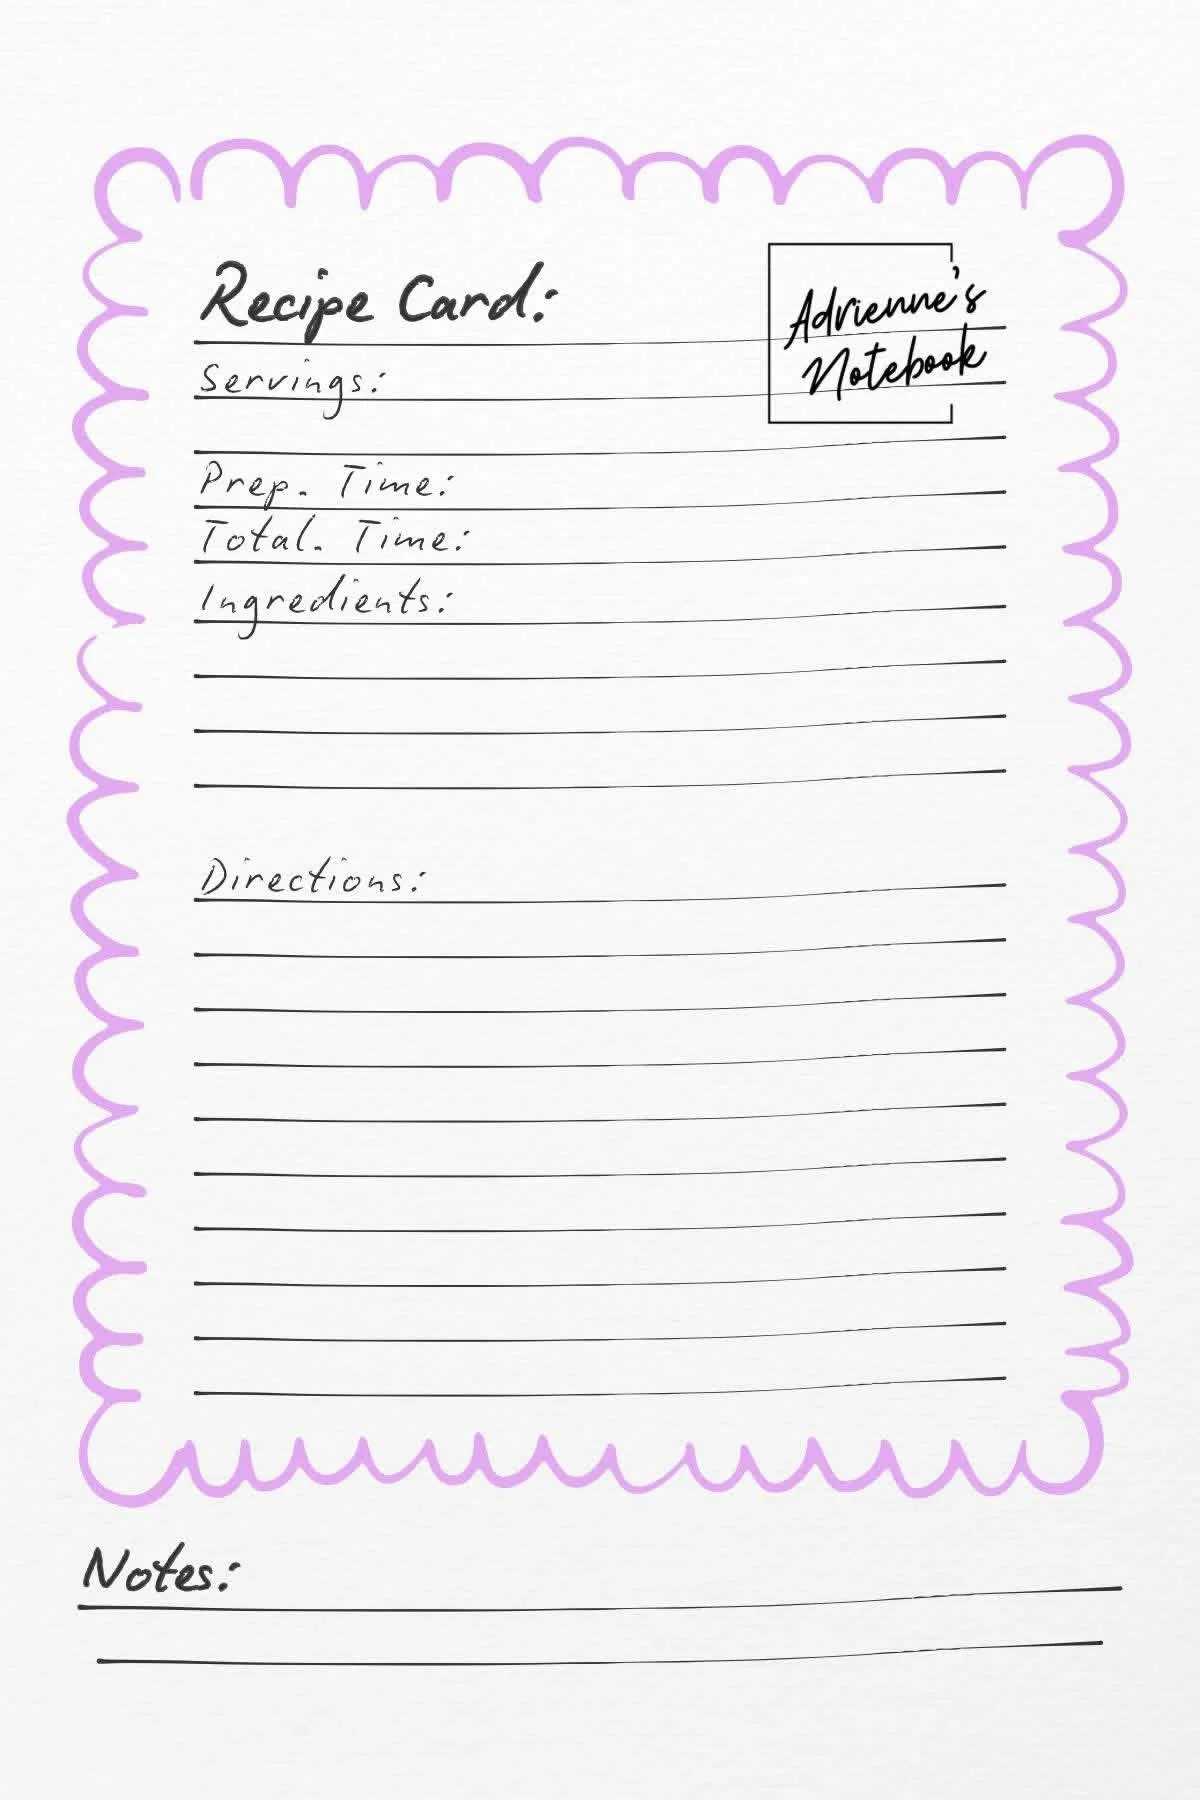 Recipe Card:
Adrienne's
Notebook
Servings:
Prep. Time:
Total. Time:
Ingredients:
Directions:
Notes: